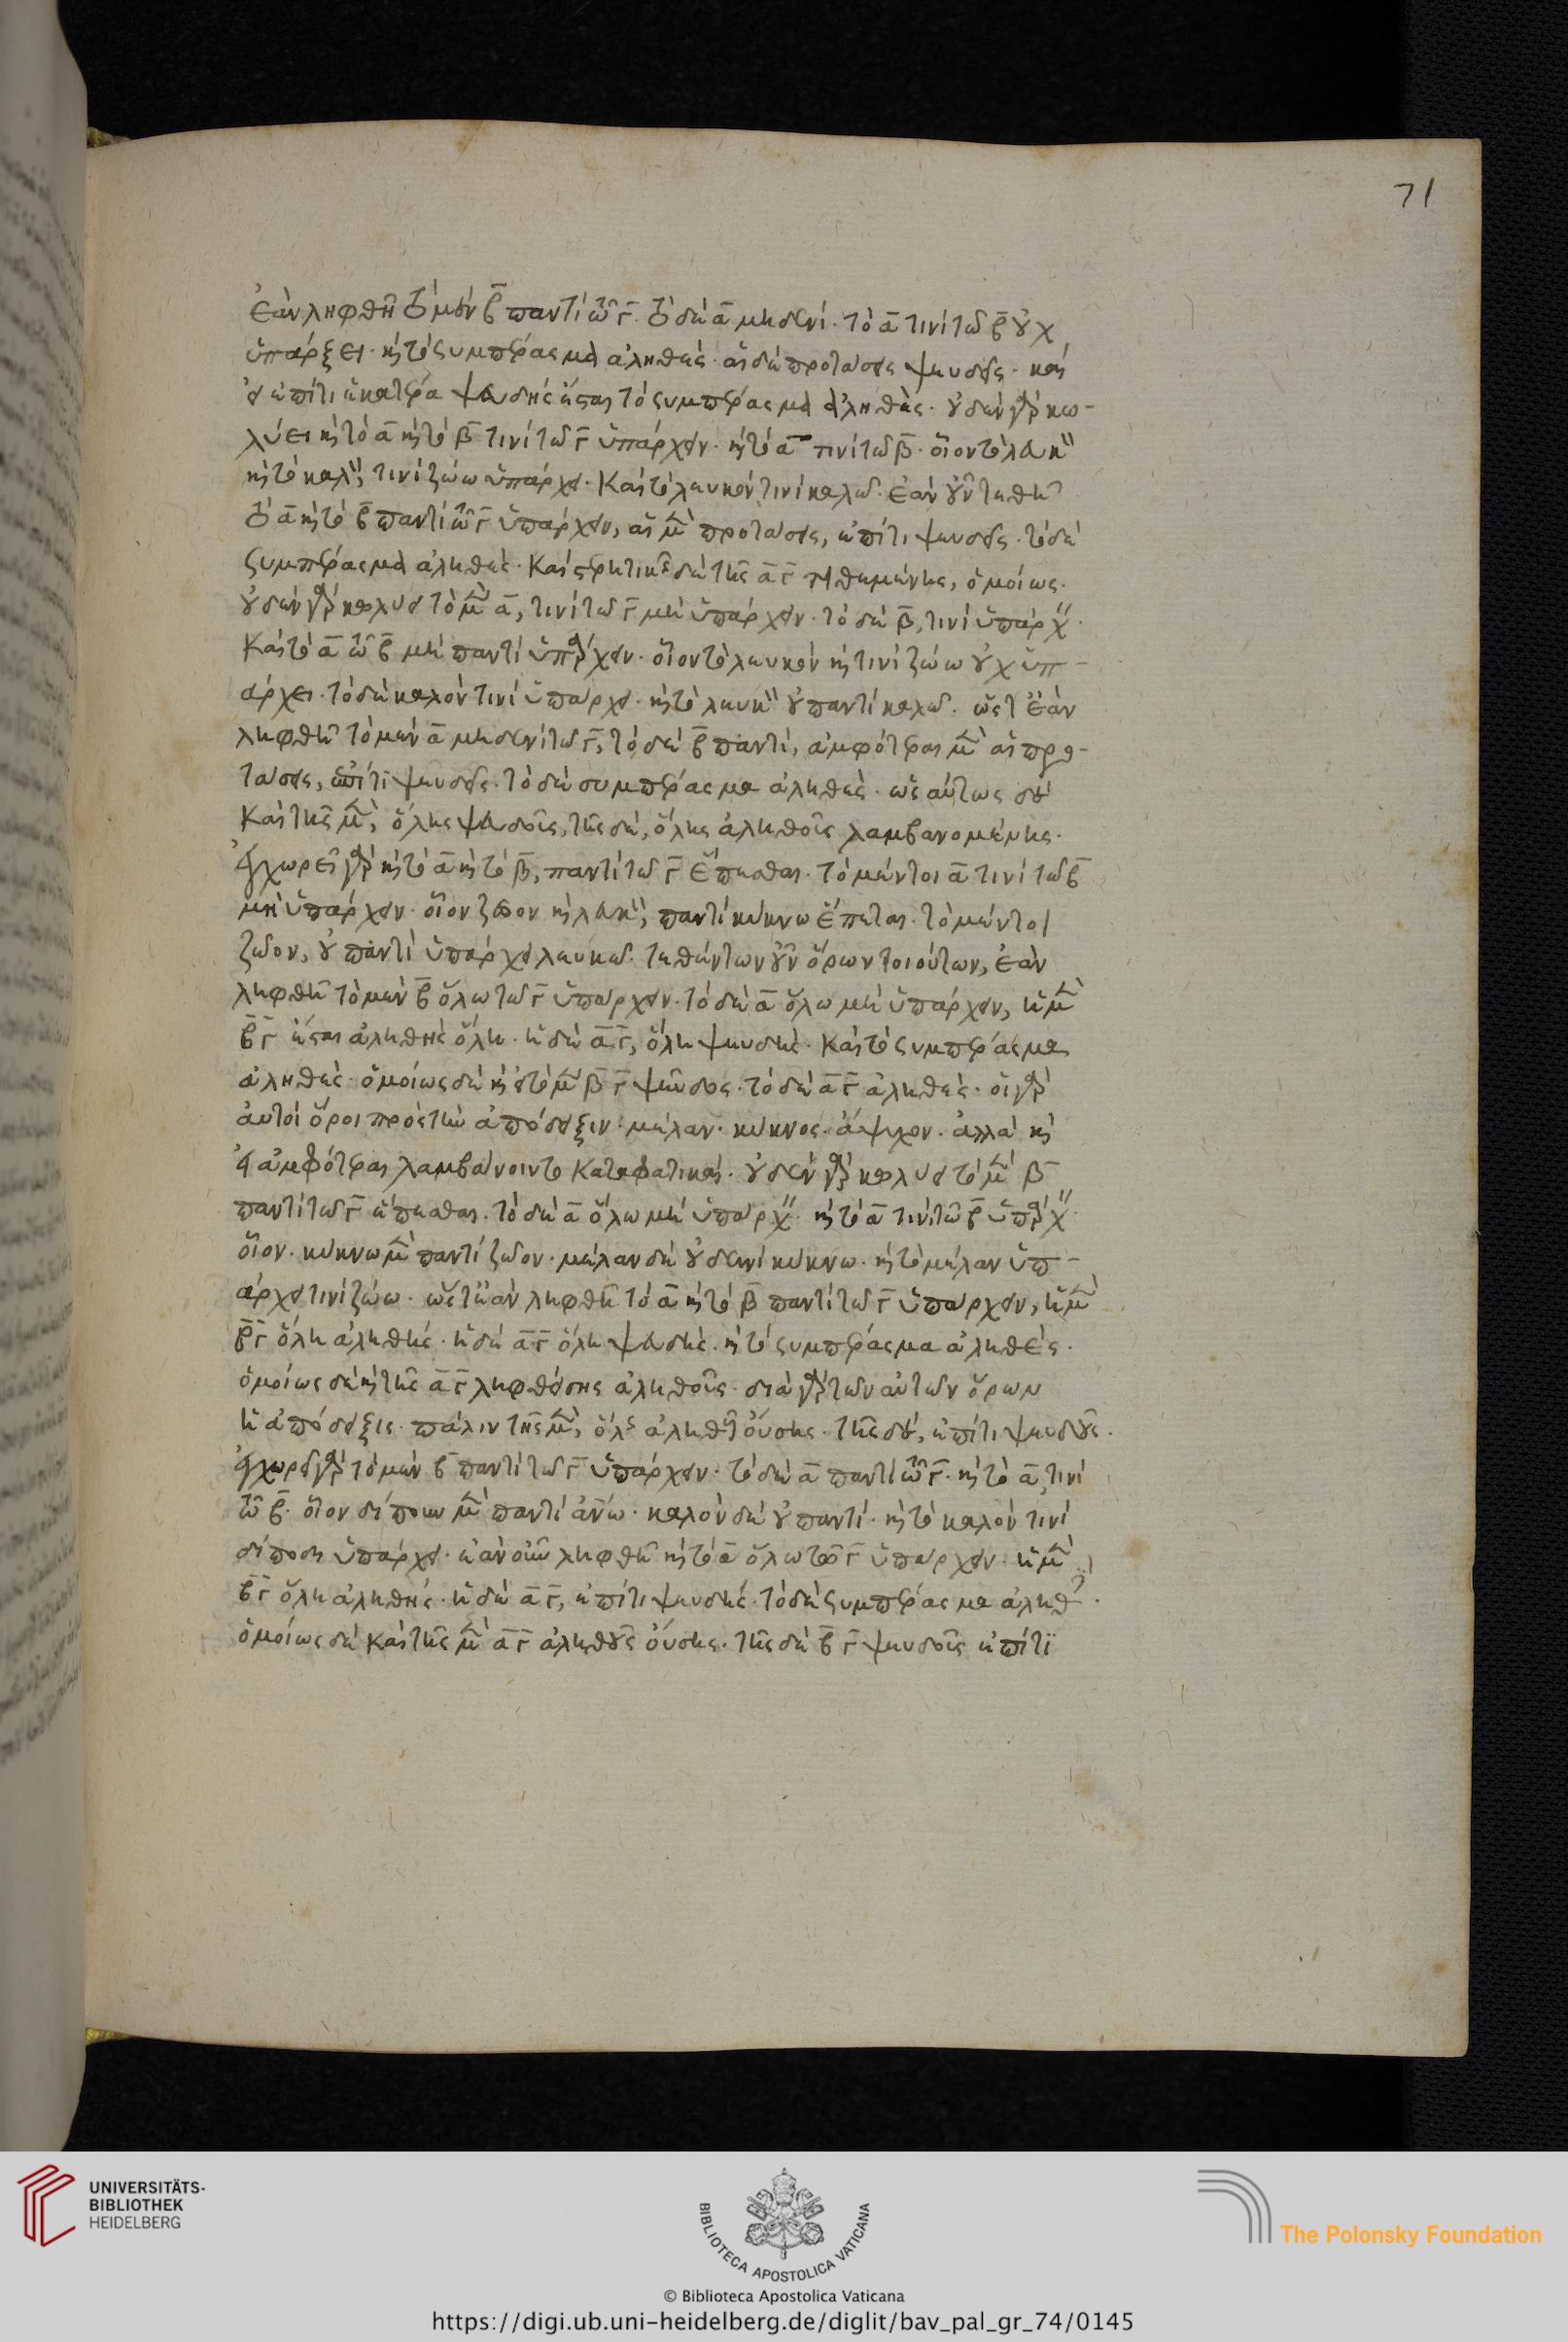 71
ἐὰν ληφθῆ τὸ μὲν β̄ παντὶ τῶ γ̄. τὸ δὲ ᾱ μηδενί. τὸ ᾱ τινὶ τῶ β̄ οὐχ
ὑπάρξει. καὶ τὸ συμπέρασμα ἀληθές. αἱ δὲ προτάσεις ψευδεῖς. καὶ
εἰ ἐπίτι ἑκατέρα ψευδὴς ἔσται τὸ συμπέρασμα ἀληθές. οὐδὲν γὰρ κω-
λύει καὶ τὸ ᾱ καὶ τὸ β̄ τινὶ τῶ γ̄ ὑπάρχειν. καὶ τὸ ᾱ τινὶ τῶ β̄. οἷον τὸ λευκὸν
καὶ τὸ καλὸν, τινὶ ζώω ὑπάρχει. καὶ τὸ λευκὸν τινὶ καλῶ. ἐὰν οὖν τεθῆ
τὸ ᾱ καὶ τὸ β̄ παντὶ τῶ γ̄ ὑπάρχειν, αἱ μὲν προτάσεις, ἐπίτι ψευδεῖς. τὸ δὲ
συμπέρασμα ἀληθές. καὶ στερητικῆς δὲ τῆς ᾱ γ̄ τιθεμένης, ὁμοίως.
οὐδὲν γὰρ κωλύει τὸ μὲν ᾱ, τινὶ τῶ γ̄ μὴ ὑπάρχειν. τὸ δὲ β̄, τινὶ ὑπάρχειν.
καὶ τὸ ᾱ τῶ β̄ μὴ παντὶ ὑπάρχειν. οἷον τὸ λευκὸν καὶ τινὶ ζώω οὐχ ὑπ-
άρχει. τὸ δὲ καλὸν τινὶ ὑπάρχει. καὶ τὸ λευκὸν οὐ παντὶ καλῶ. ὥστ' ἐὰν
ληφθῆ τὸ μὲν ᾱ μηδενὶ τῶ γ̄, τὸ δὲ β̄ παντὶ, ἀμφότεραι μὲν αἱ προ-
τάσεις, ἐπίτι ψευδεῖς. τὸ δὲ συμπέρασμα ἀληθές. ὡσαύτως δὲ
καὶ τῆς μὲν, ὅλης ψευδοῦς, τῆς δὲ, ὅλης ἀληθοῦς λαμβανομένης.
ἐγχωρεῖ γὰρ καὶ τὸ ᾱ καὶ τὸ β̄, παντὶ τῶ γ̄ ἕπεσθαι. τὸ μέντοι ᾱ τινὶ τῶ β̄
μὴ ὑπάρχειν. οἷον ζῶον καὶ λευκὸν, παντὶ κύκνω ἕπεται. τὸ μέντοι
ζῶον, οὐ παντὶ ὑπάρχει λευκῶ. τεθέντων οὖν ὅρων τοιούτων, ἐὰν
ληφθῆ τὸ μὲν β̄ ὅλω τῶ γ̄ ὑπάρχειν. τὸ δὲ ᾱ ὅλω μὴ ὑπάρχειν, ἡ μὲν
β̄ γ̄ ἔσται ἀληθὴς ὅλη. ἡ δὲ ᾱ γ̄, ὅλη ψευδής. καὶ τὸ συμπέρασμα
ἀληθές. ὁμοίως δὲ καὶ εἰ τὸ μὲν β̄ γ̄ ψεῦδος. τὸ δὲ ᾱ γ̄ ἀληθές. οἱ γὰρ
αὐτοὶ ὅροι πρὸς τὴν ἀπόδειξιν. μέλαν. κύκνος. ἄψυχον. ἀλλὰ καὶ
εἰ ἀμφότεραι λαμβάνοιντο καταφατικαί. οὐδὲν γὰρ κωλύει τὸ μὲν β̄
παντὶ τῶ γ̄ ἕπεσθαι. τὸ δὲ ᾱ ὅλω μὴ ὑπάρχειν. καὶ τὸ ᾱ τινὶ τῶ β̄ ὑπάρχειν.
οἷον. κύκνω μὲν παντὶ ζῶον. μέλαν δὲ οὐδενὶ κύκνω. καὶ τὸ μέλαν ὑπ-
άρχει τινὶ ζώω. ὥστ' ἐὰν ληφθῆ τὸ ᾱ καὶ τὸ β̄ παντὶ τῶ γ̄ ὑπάρχειν, ἡ μὲν
β̄ γ̄ ὅλη ἀληθής. ἡ δὲ ᾱ γ̄ ὅλη ψευδής. καὶ τὸ συμπέρασμα ἀληθές.
ὁμοίως δὲ καὶ τῆς ᾱ γ̄ ληφθείσης ἀληθοῦς. διὰ γὰρ τῶν αὐτῶν ὅρων
ἡ ἀπόδειξις. πάλιν τῆς μὲν, ὅλης ἀληθοῦς οὔσης. τῆς δὲ, ἐπίτι ψευδοῦς.
ἐγχωρεῖ γὰρ τὸ μὲν β̄ παντὶ τῶ γ̄ ὑπάρχειν. τὸ δὲ ᾱ παντὶ τῶ γ̄. καὶ τὸ ᾱ, τινὶ
τῶ β̄. οἷον δίπουν μὲν παντὶ ἀνθρώπω. καλὸν δὲ οὐ παντί. καὶ τὸ καλὸν τινὶ
δίποδι ὑπάρχει. ἐὰν οὖν ληφθῆ καὶ τὸ ᾱ ὅλω τῶ γ̄ ὑπάρχειν. ἡ μὲν
β̄ γ̄ ὅλη ἀληθής. ἡ δὲ ᾱ γ̄, ἐπίτι ψευδής. τὸ δὲ συμπέρασμα ἀληθές.
ὁμοίως δὲ καὶ τῆς μὲν ᾱ γ̄ ἀληθοῦς οὔσης. τῆς δὲ β̄ γ̄ ψευδοῦς ἐπίτι
UNIVERSITÄTS-
BIBLIOTHEK
HEIDELBERG
BIBLIOTECA APOSTOLICA VATICANA
The Polonsky Foundation
© Biblioteca Apostolica Vaticana
https://digi.ub.uni-heidelberg.de/diglit/bav_pal_gr_74/0145